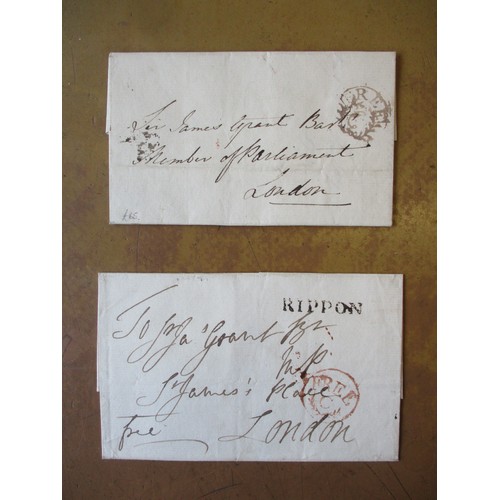 FREE
Sir James Grant Bart
Member of Parliament
London
RIPPON
To Sr Ja's Grant Bt
M.P.
St James's Place
FREE
free London